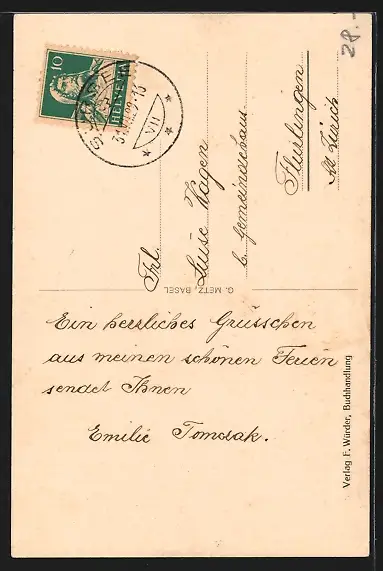 28.-
10
HELVETIA
Frl.
Luise Hagen
b. Gemeindehaus
Flurlingen
Kt. Zürich
G. METZ, BASEL
Ein herzliches Grüsschen
aus meinen schönen Ferien
sendet Ihnen
Emilie Tomsak.
Verlag F. Würder, Buchhandlung